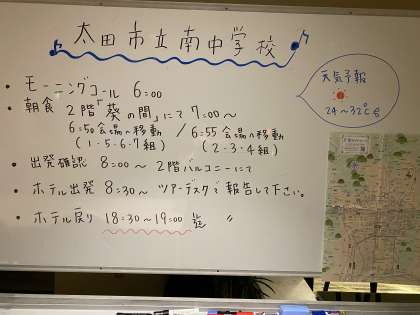 太田市立南中学校
• モーニングコール 6:00
• 朝食 2階「葵の間」にて 7:00〜
6:50 会場へ移動 / 6:55 会場へ移動
(1・5・6・7組) (2・3・4組)
• 出発確認 8:00〜 2階バルコニーにて
• ホテル出発 8:30〜 ツアーデスクで報告して下さい。
• ホテル戻り 18:30〜19:00迄 〃
天気予報
24〜32℃